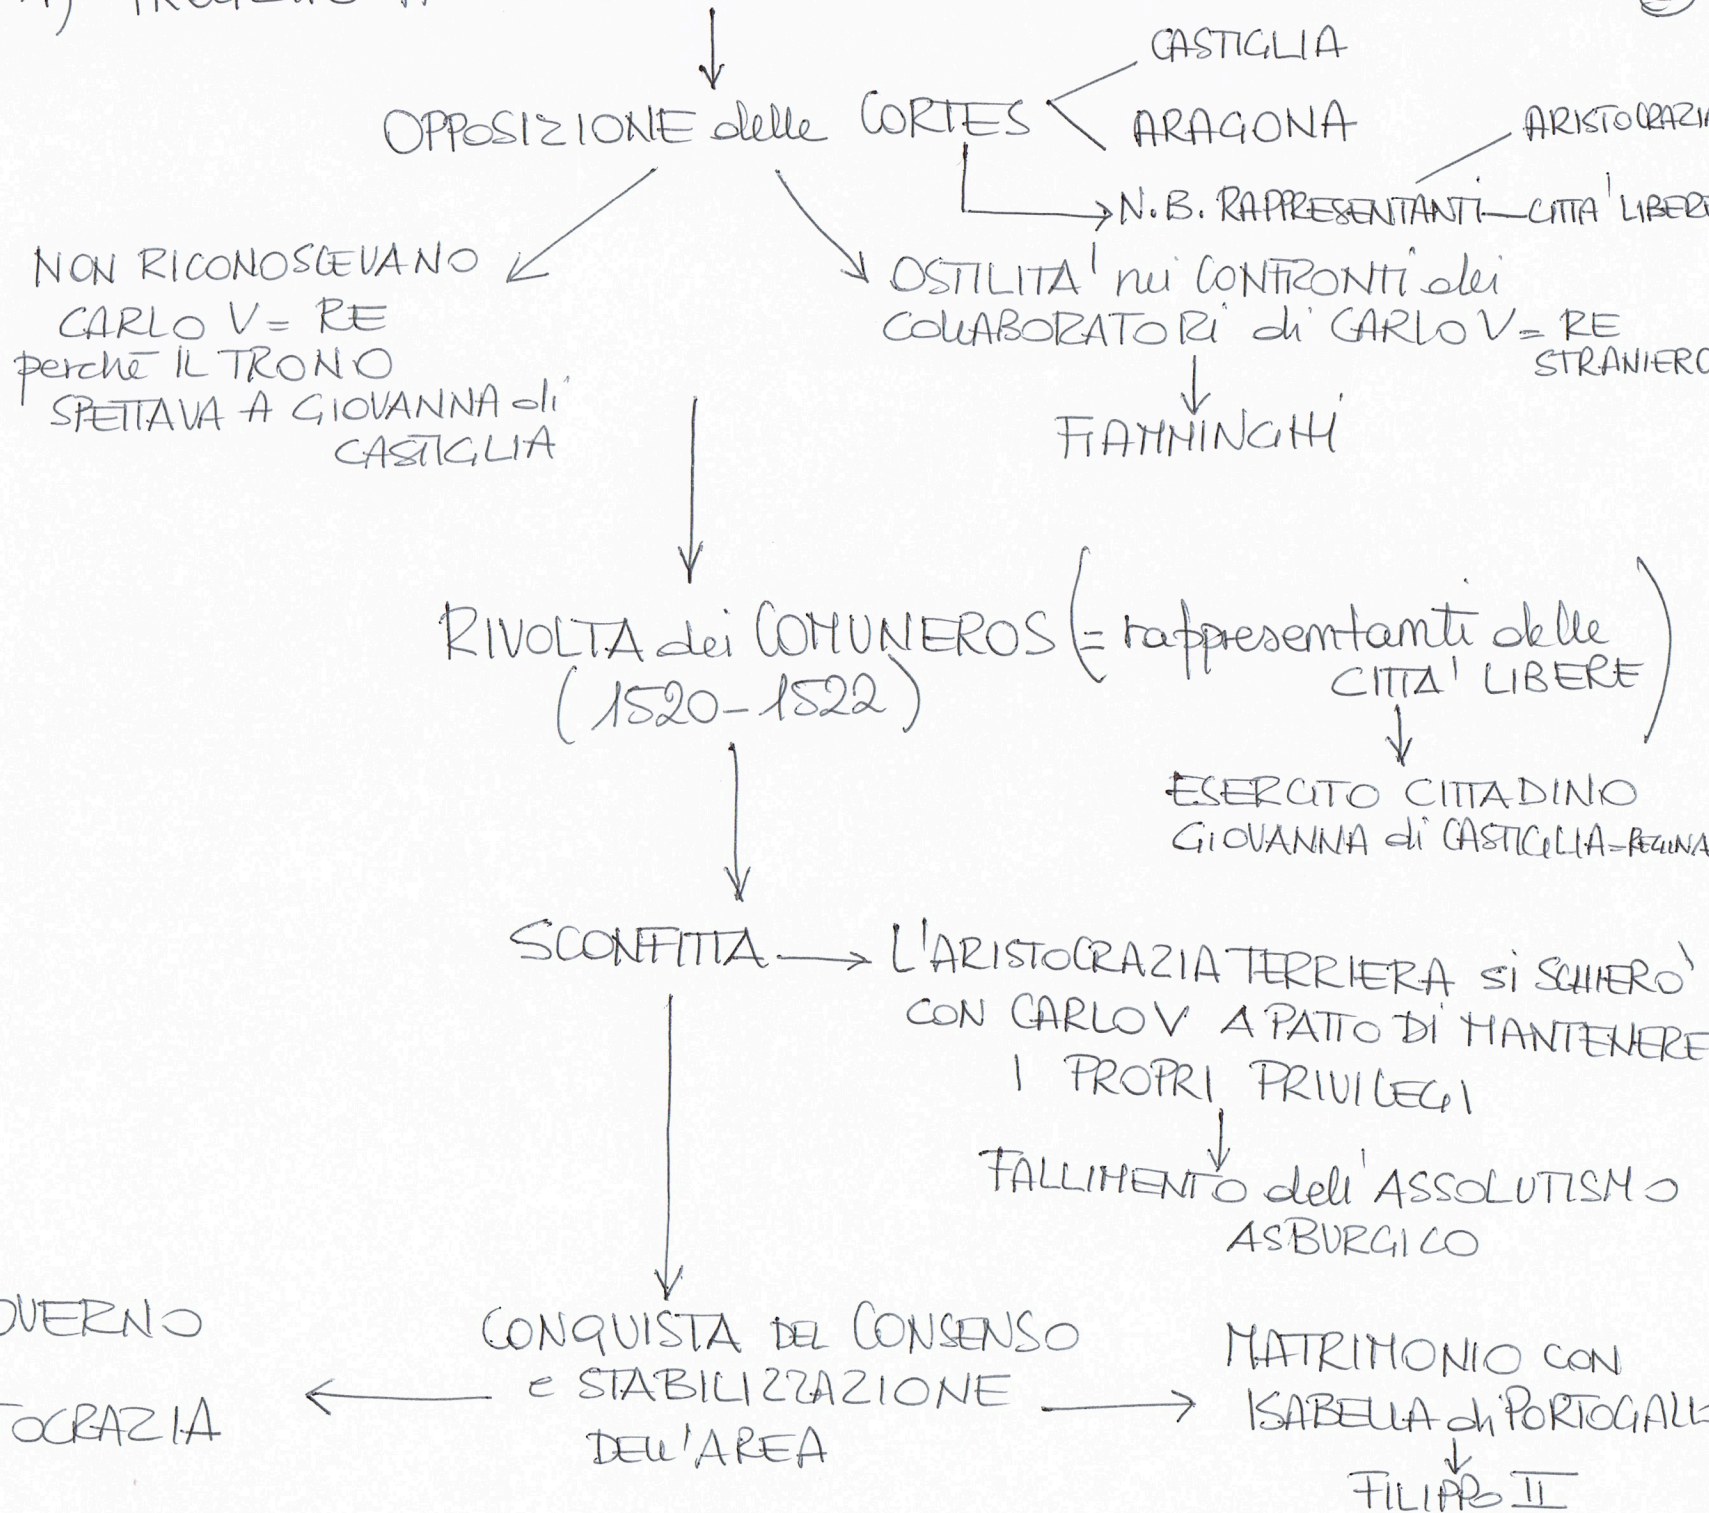 CASTIGLIA
OPPOSIZIONE delle CORTES
ARAGONA
ARISTOCRAZIA
N.B. RAPPRESENTANTI — CITTA' LIBERE
NON RICONOSCEVANO
CARLO V = RE
perché IL TRONO
SPETTAVA A GIOVANNA di
CASTIGLIA
OSTILITA' nei CONFRONTI dei
COLLABORATORI di CARLO V = RE
STRANIERO
FIAMMINGHI
RIVOLTA dei COMUNEROS (= rappresentanti delle
CITTA' LIBERE)
(1520-1522)
ESERCITO CITTADINO
GIOVANNA di CASTIGLIA = REGINA
SCONFITTA → L'ARISTOCRAZIA TERRIERA si SCHIERÒ
CON CARLO V A PATTO DI MANTENERE
I PROPRI PRIVILEGI
FALLIMENTO dell'ASSOLUTISMO
ASBURGICO
OVERNO
TOCRAZIA
CONQUISTA DEL CONSENSO
e STABILIZZAZIONE
DELL'AREA
MATRIMONIO CON
ISABELLA di PORTOGALL
FILIPPO II